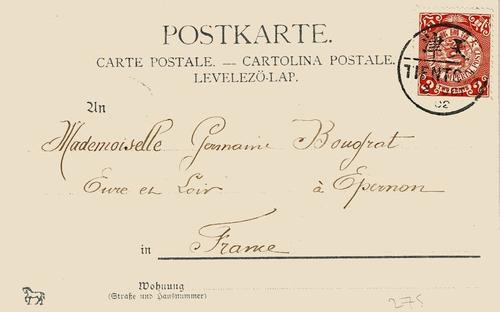 POSTKARTE.
CARTE POSTALE. — CARTOLINA POSTALE.
LEVELEZÖ-LAP.
TIENTSIN
02
An
Mademoiselle Germaine Bougrat
Eure et Loir à Epernon
in France
Wohnung
(Straße und Hausnummer)
275